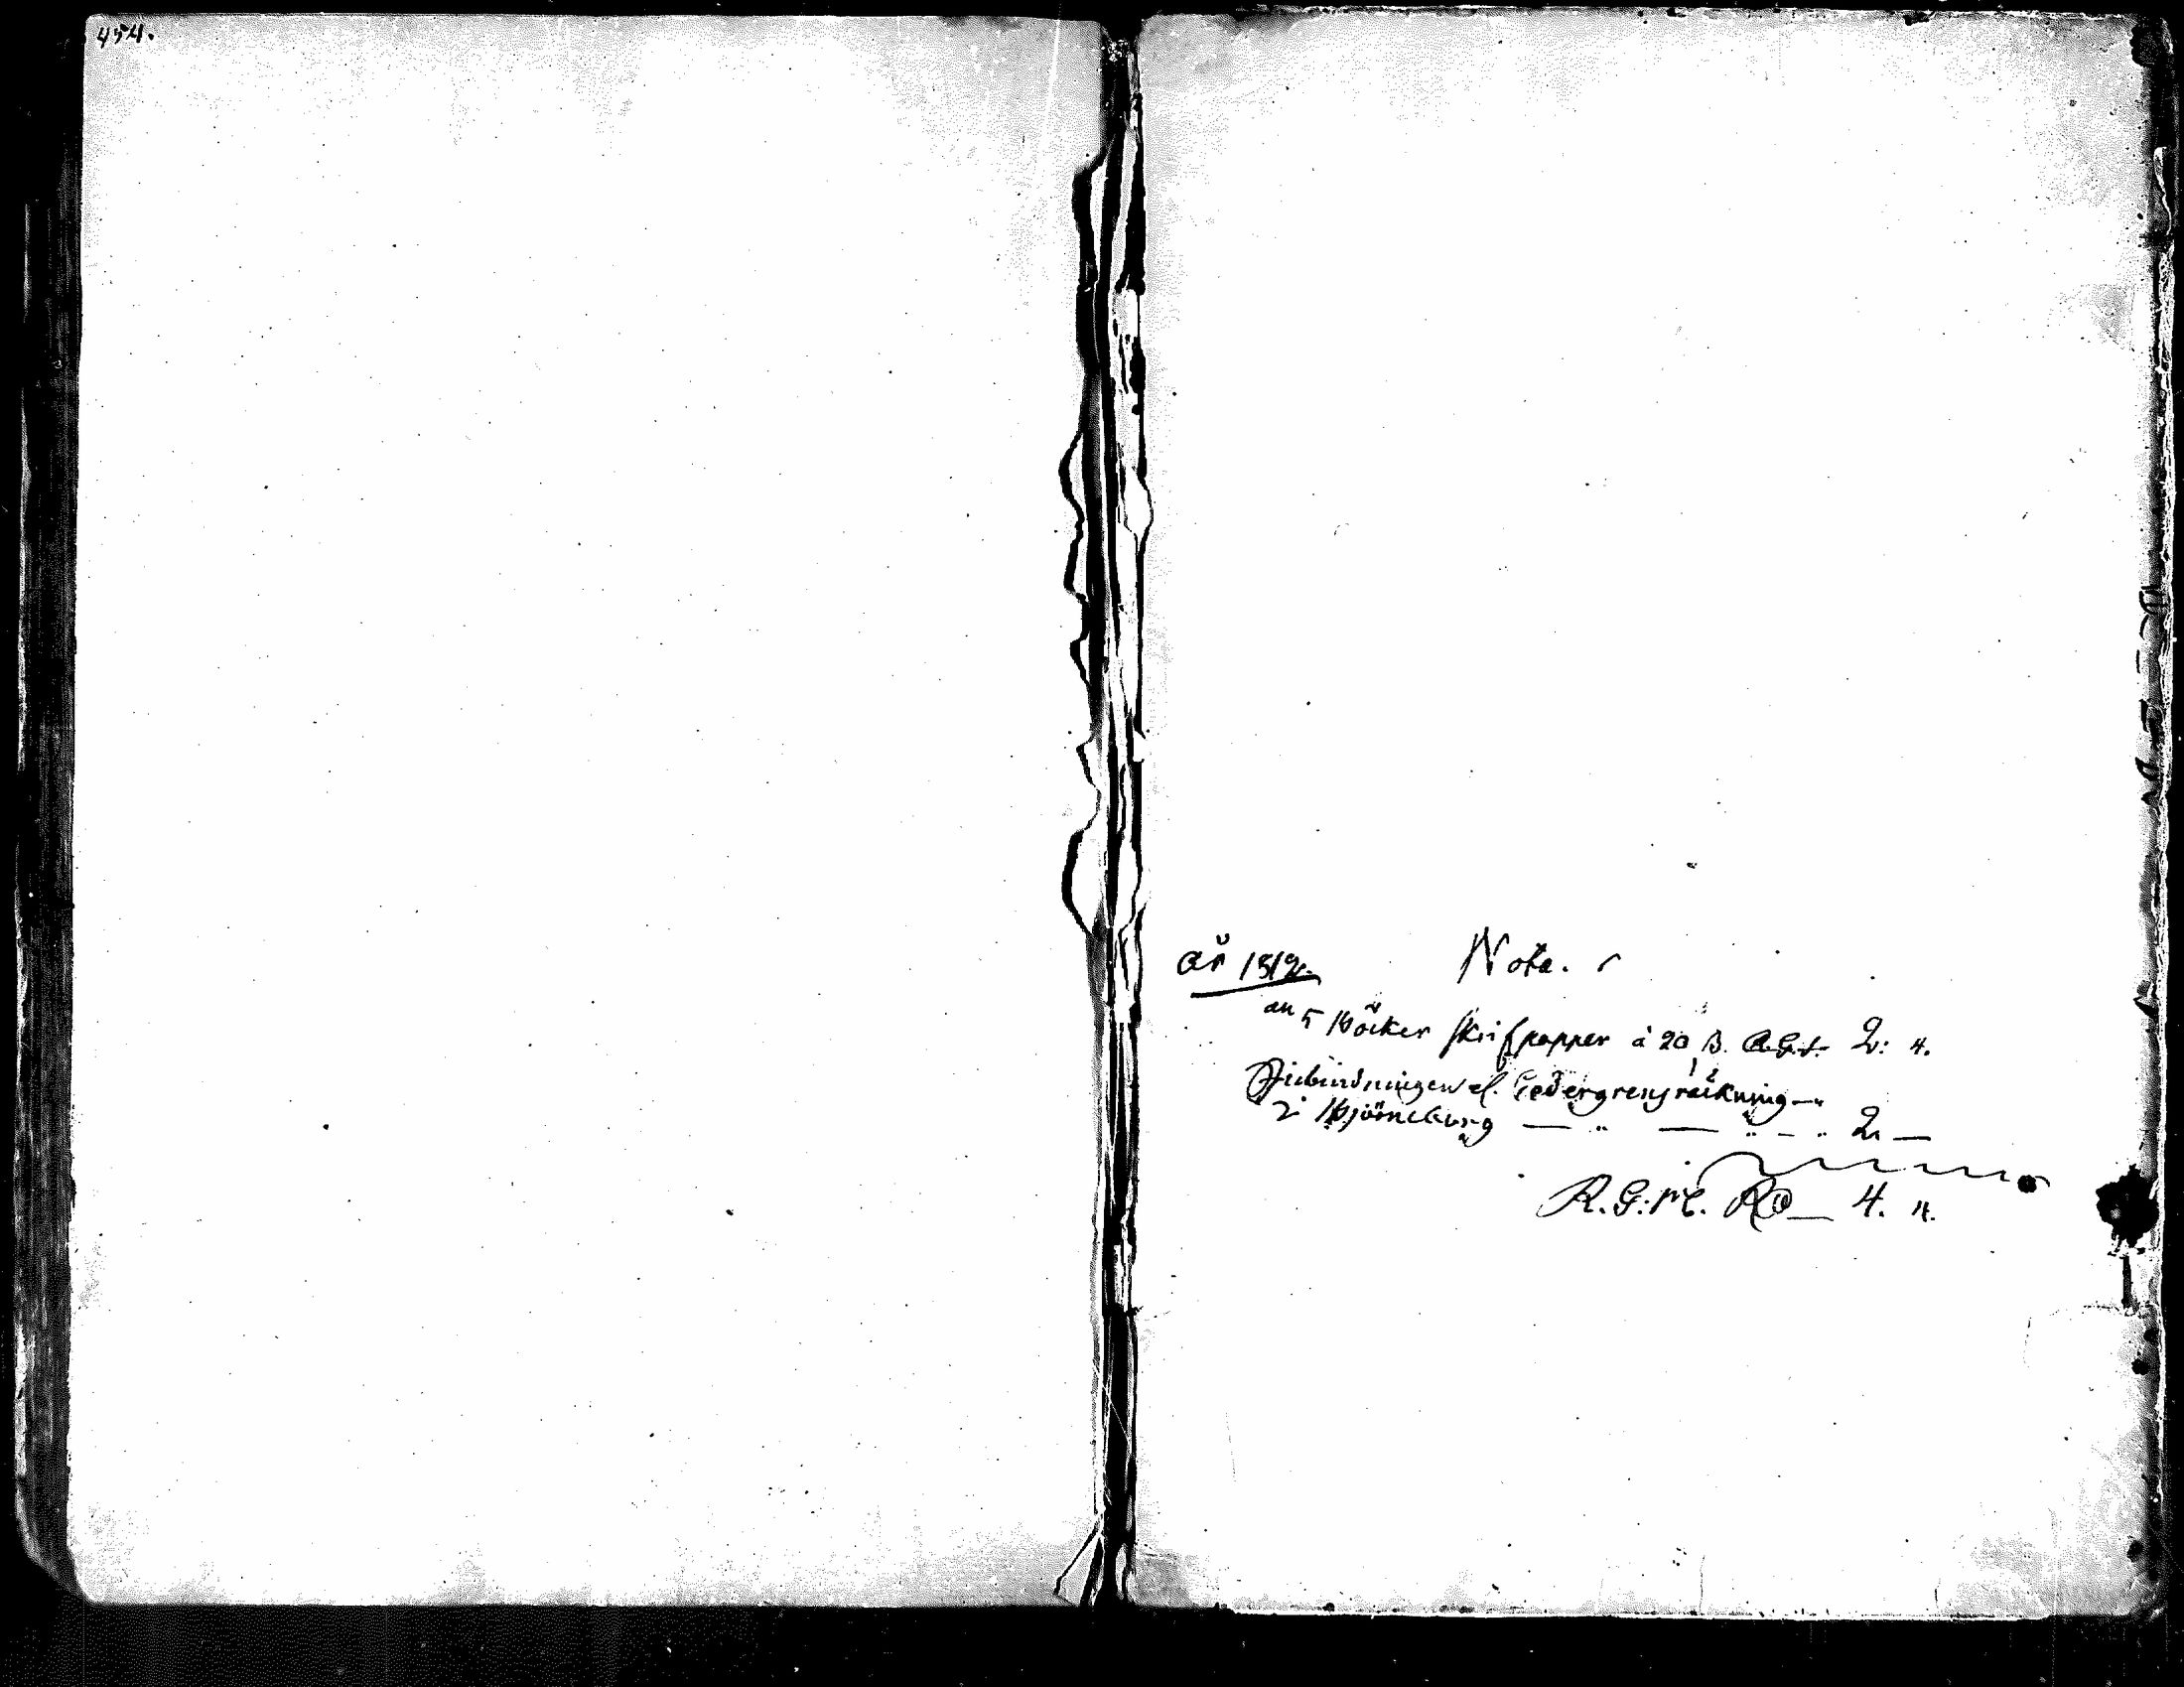 454.
år 1812. Nota.
an 5 Böcker skrifpapper à 20 ß. R.G.s. 2: 4.
Inbindningen el. Cedergrens räkning — "
i Björneborg — " — " – " 2. —
R.G:M. RD — 4. 4.